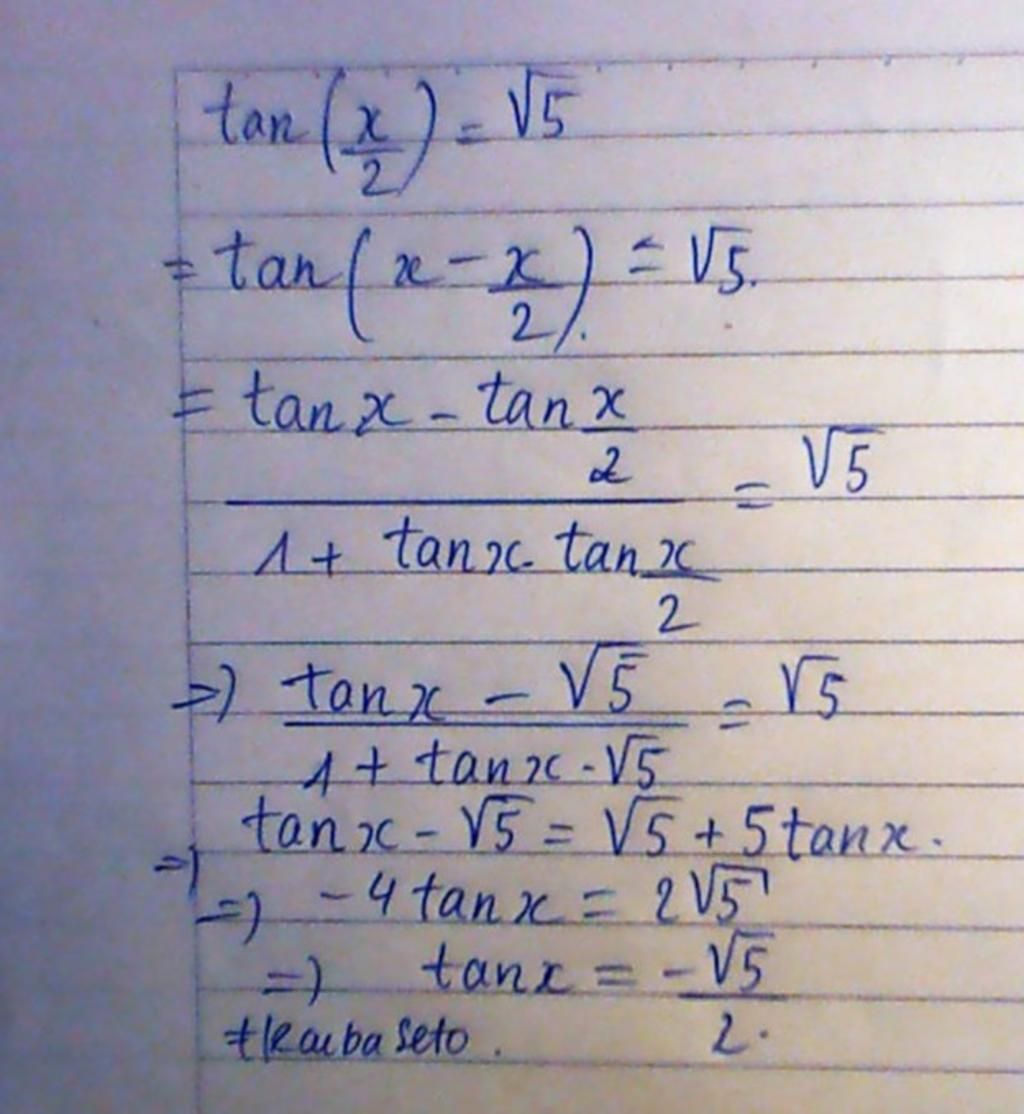 tan(x/2) = √5
= tan(x - x/2) = √5.
= (tan x - tan x/2) / (1 + tan x. tan x/2) = √5
=) (tan x - √5) / (1 + tan x . √5) = √5
=) tan x - √5 = √5 + 5 tan x.
=) -4 tan x = 2√5
=) tan x = -√5/2.
#Kaiba Seto.